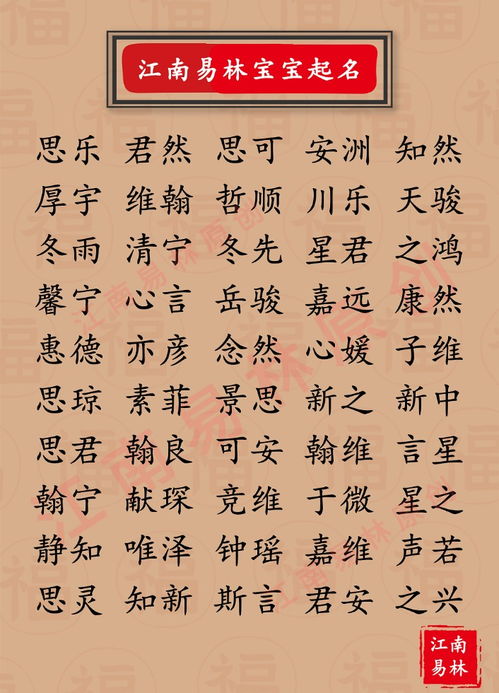 江南易林宝宝起名
思乐 君然 思可 安洲 知然
厚宇 维翰 哲顺 川乐 天骏
冬雨 清宁 冬先 星君 之鸿
馨宁 心言 岳骏 嘉远 康然
惠德 亦彦 念然 心媛 子维
思琼 素菲 景思 新之 新中
思君 翰良 可安 翰维 言星
翰宁 献琛 竞维 于微 星之
静知 唯泽 钟瑶 嘉维 声若
思灵 知新 斯言 君安 之兴
江南易林原创
江南易林原创
江南易林原创
江南
易林